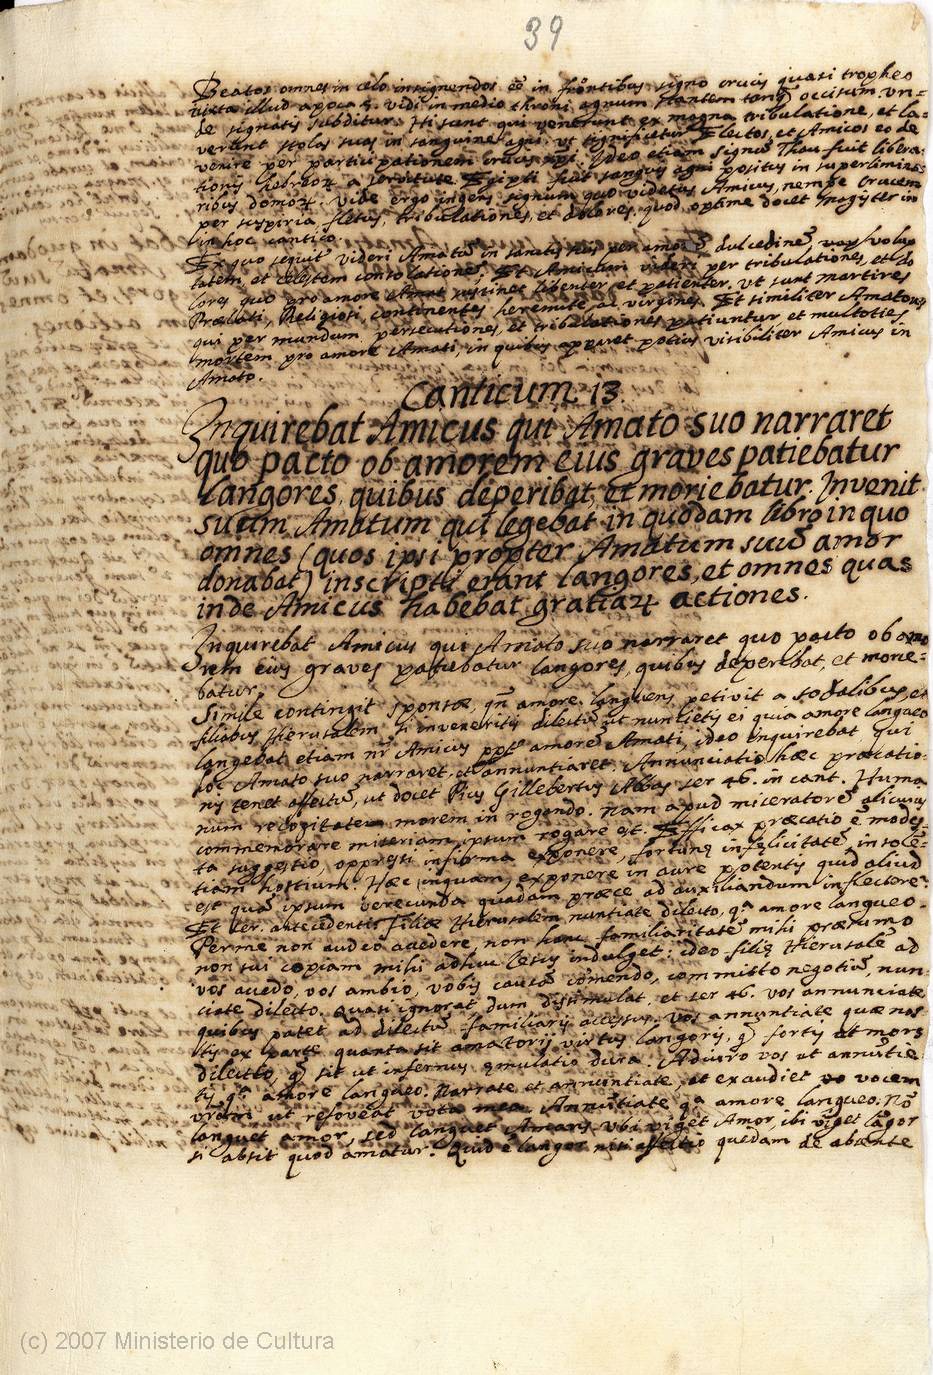 39
Beatos omnes in cœlo insignendos eē in frōntibus signo crucis quasi tropheo
iuxta illud apoca 5. vidi in medio throni agnum stantem tanq̄ occisum. vn=
de signatis subditur. Hi sunt qui venerunt ex magna tribulatione, et la=
verunt stolas suas in sanguine agni. vt significetur Electos, et Amicos eo de
venire per participationem crucis xp̄i. Ideo etiam signū Thau fuit libera
tionis hebreoꝝ a servitute Egipti sicut sanguis agni positus in superlimina
ribus domoꝝ. vide ergo ingens signum quo videtur Amicus, nempe crucem
per suspiria, fletus, tribulationes, et dolores, quod optime docet Magister in
in hoc cantico.
Ex quo sequit videri Amatū in sanctis per amorē dulcedinē, volup
tatem, et cœlestem consolationē. Et Amicum videri per tribulationes, et do
lores quo pro amore Amati sustinet libenter et patienter. vt sunt martires
Prœllati, Religiosi, continentes heremitœ ac virgines. Et similiter Amatores
qui per mundum persecutiones, et tribulationes patiuntur et multoties
mortem pro amore Amati, in quibus apparet potius visibiliter Amicus in
Amato.
Canticum. 13.
Inquirebat Amicus qui Amato suo narraret
quo pacto ob amorem eius graves patiebatur
langores, quibus deperibat, et moriebatur. Invenit
suum Amatum qui legebat in quōdam libro in quo
omnes (quos ipsi propter Amatum suū amor
donabat) inscripti erant langores, et omnes quas
inde Amicus habebat gratiaꝝ actiones.
Inquirebat Amicus qui Amato suo narraret quo pacto ob amo
rem eius graves patiebatur langores, quibus deperibat, et morie=
batur.
Simile contingit sponsœ, qn̄ amore languens petivit a sodalibus, et
filiabus Hierusalem si inveneritis dilectū ut nuntietis ei quia amore langueo
langebat etiam nr̄ Amicus ppt̄ amorē Amati, ideo inquirebat qui
hoc Amato suo narraret, et annuntiaret. Annunciatio hœc prœcatio=
nis tenet affectū, ut docet Pius Gillebertus Abbas ser 46. in cant. Huma
num recogitate morem in rogendo. Nam apud miceratorē alicuius
commemorare miseriam, ipsum rogare est. Efficax prœcatio ē modes
ta suggestio, oppressi infirma exponere, fortunę infęlicitatē, insolē=
tiam hostium. Hœc inquam, exponere in aure potentis quid aliud
est quā ipsum verecunda quadam prœce ad auxiliandum inflectere?
Et ser. antecedenti Filiœ Hierusalem nuntiate dilecto, qª amore langueo.
Perme non audeo accedere, non hanc familiaritatē mihi prœsumo
non sui copiam mihi adhuc Iesus indulget: ideo filię Hierusalē ad
vos accedo, vos ambio, vobis causā cōmendo, committo negotiū, nun=
ciate dilecto. Quasi ignorat dum dissimulat, et ser 46. vos annunciate
quibus patet ad dilectū familiaris accessus. vos annuntiate quœ nos
tis ex parte quanta sit amatoris virtus langoris, q̄ fortis et mors
dilectio, q̄ sit ut infernus ęmulatio dura. Adiuro vos ut annūtie
tis qª amore langueo. Narrate et annuntiate, et exaudiet vocem
vram ut resoveat vota mea. Annūtiate qª amore langueo. Nō
languet amor, sed languet Amans. vbi viget Amor, ibi viget lāgor
si absit quod amatur. Quid ē langor nisi affectio quędam de absente
(c) 2007 Ministerio de Cultura